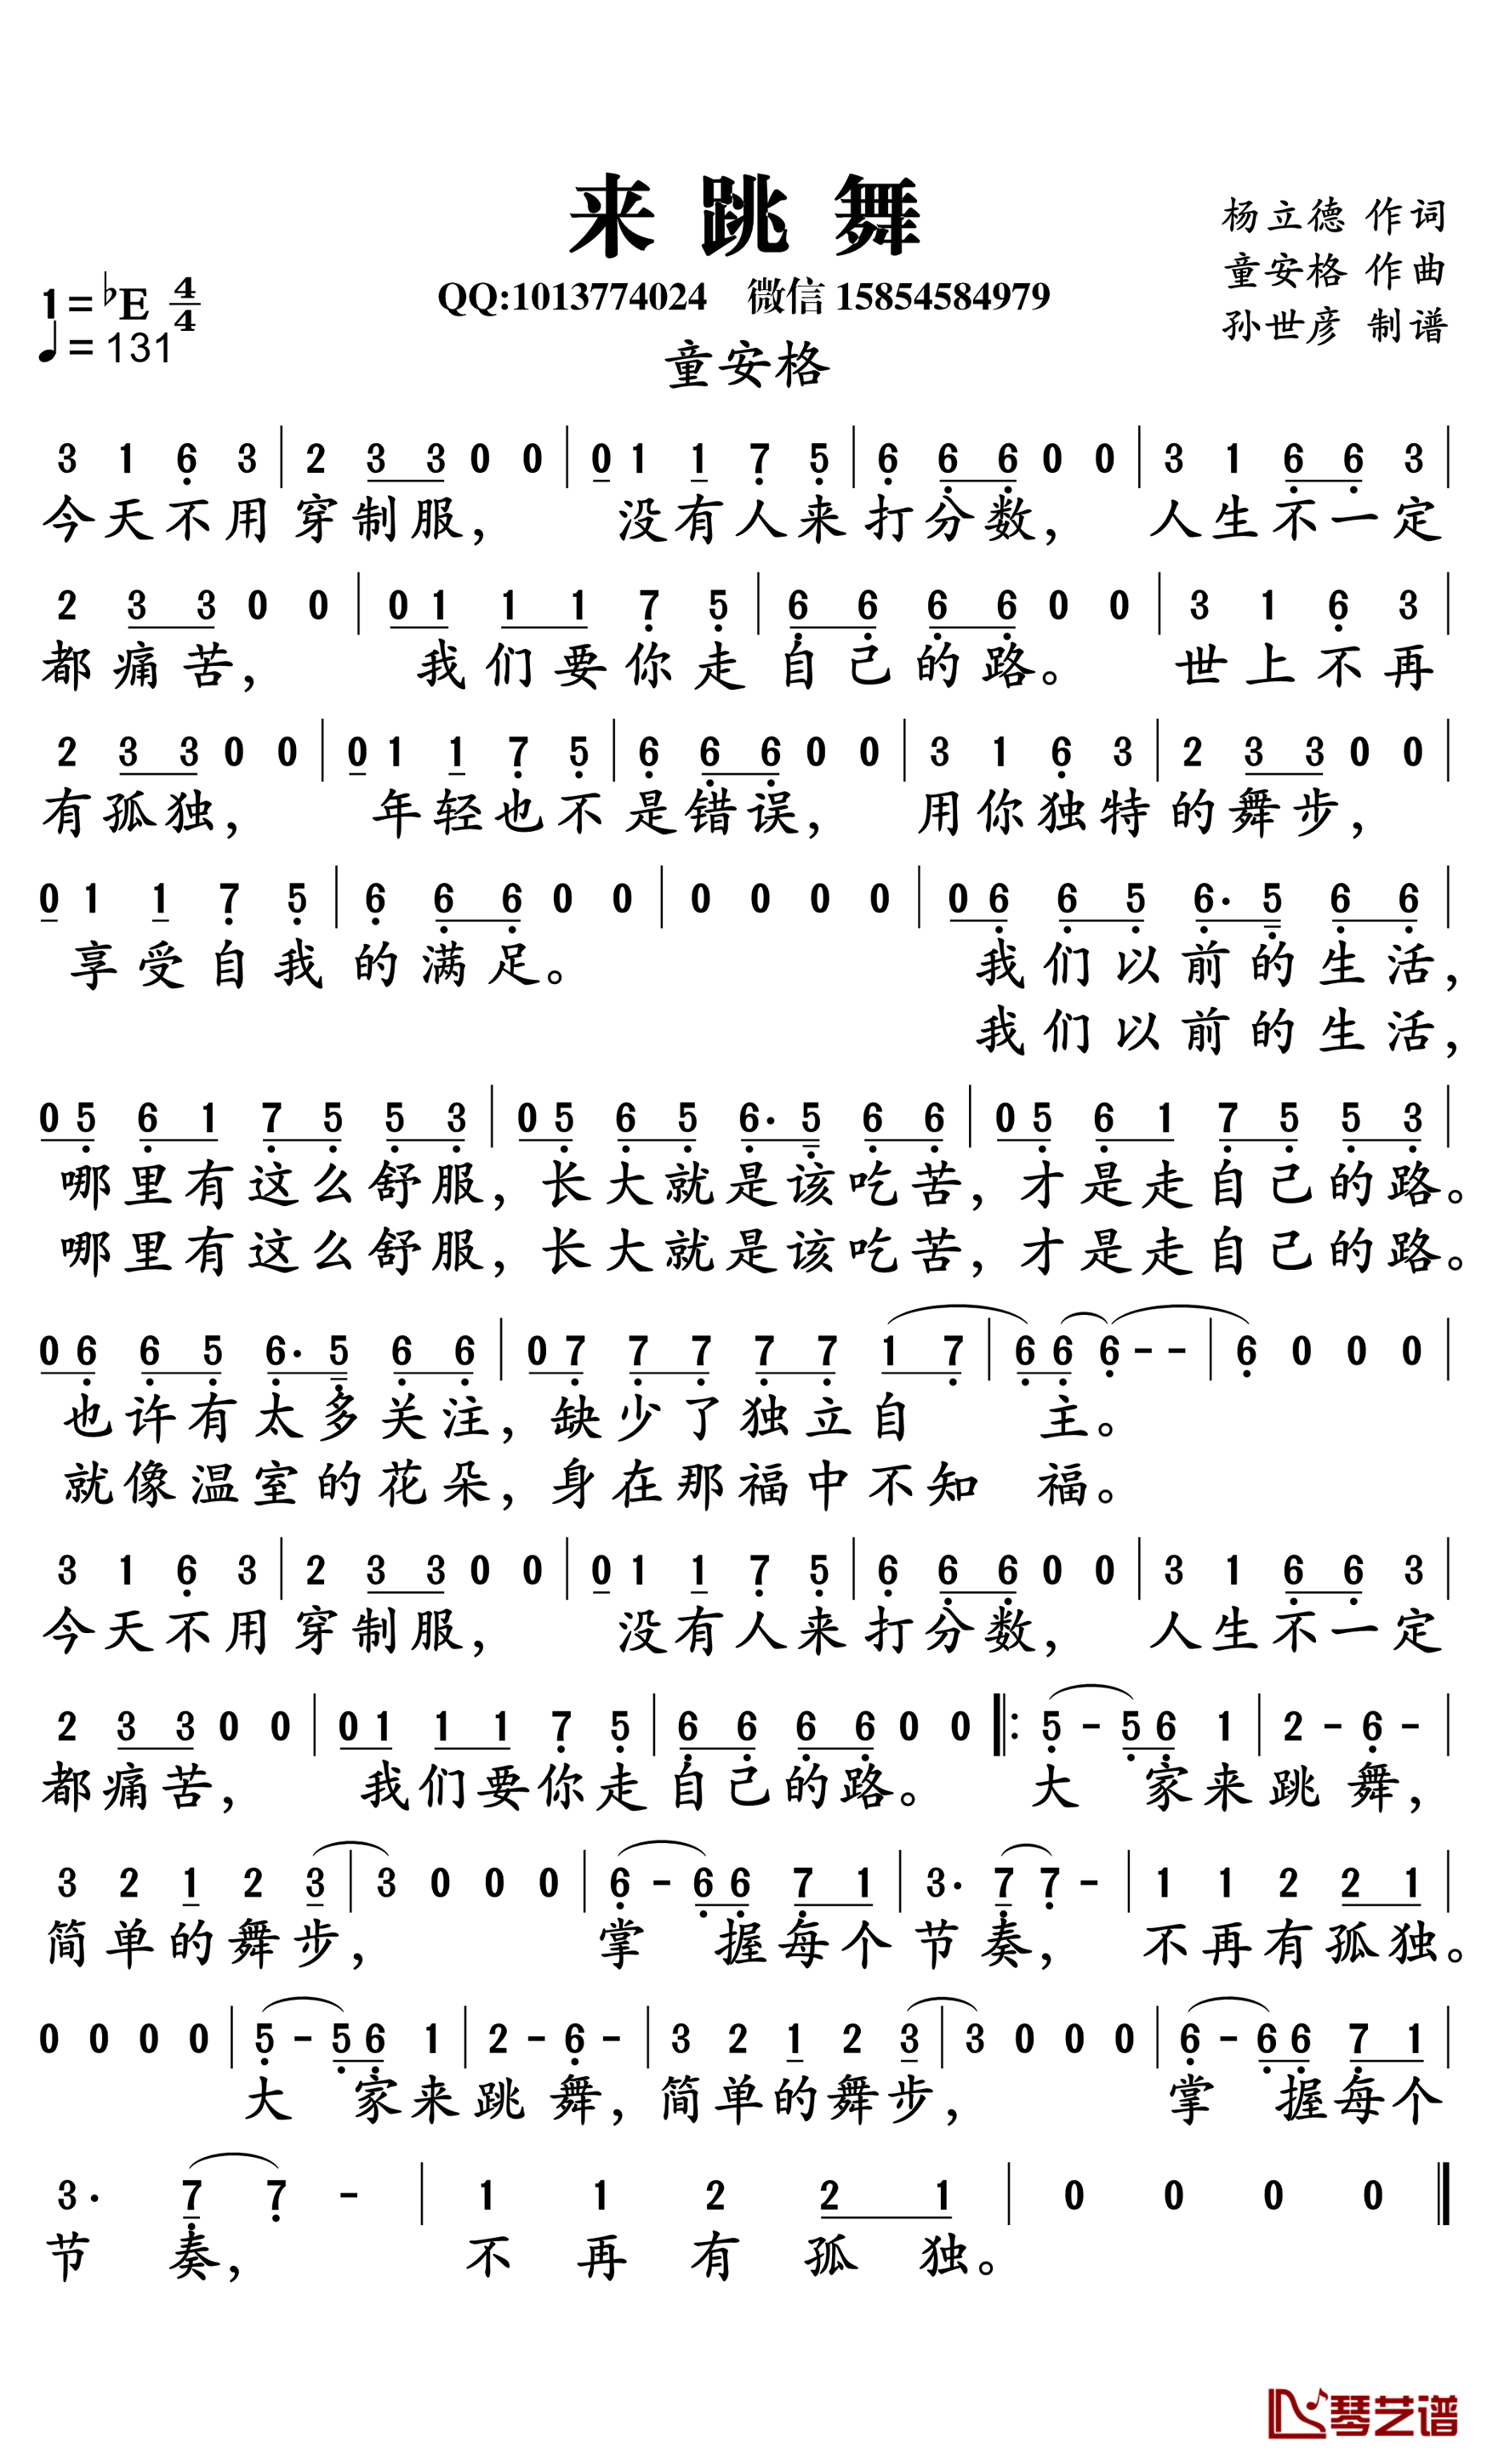 来跳舞
杨立德 作词
童安格 作曲
孙世彦 制谱
1=♭E 4/4
♩=131
QQ:1013774024 微信 15854584979
童安格
3 1 6 3 | 2 3 3 0 0 | 0 1 1 7 5 | 6 6 6 0 0 | 3 1 6 6 3 |
今天不用穿制服, 没有人来打分数, 人生不一定
2 3 3 0 0 | 0 1 1 1 7 5 | 6 6 6 6 0 0 | 3 1 6 3 |
都痛苦, 我们要你走自己的路。 世上不再
2 3 3 0 0 | 0 1 1 7 5 | 6 6 6 0 0 | 3 1 6 3 | 2 3 3 0 0 |
有孤独, 年轻也不是错误, 用你独特的舞步,
0 1 1 7 5 | 6 6 6 0 0 | 0 0 0 0 | 0 6 6 5 6· 5 6 6 |
享受自我的满足。 我们以前的生活,
我们以前的生活,
0 5 6 1 7 5 5 3 | 0 5 6 5 6· 5 6 6 | 0 5 6 1 7 5 5 3 |
哪里有这么舒服, 长大就是该吃苦, 才是走自己的路。
哪里有这么舒服, 长大就是该吃苦, 才是走自己的路。
0 6 6 5 6· 5 6 6 | 0 7 7 7 7 7 1 7 | 6 6 6 - - | 6 0 0 0 |
也许有太多关注, 缺少了独立自 主。
就像温室的花朵, 身在那福中不知 福。
3 1 6 3 | 2 3 3 0 0 | 0 1 1 7 5 | 6 6 6 0 0 | 3 1 6 6 3 |
今天不用穿制服, 没有人来打分数, 人生不一定
2 3 3 0 0 | 0 1 1 1 7 5 | 6 6 6 6 0 0 ‖: 5 - 5 6 1 | 2 - 6 - |
都痛苦, 我们要你走自己的路。 大 家来跳舞,
3 2 1 2 3 | 3 0 0 0 | 6 - 6 6 7 1 | 3· 7 7 - | 1 1 2 2 1 |
简单的舞步, 掌 握每个节奏, 不再有孤独。
0 0 0 0 | 5 - 5 6 1 | 2 - 6 - | 3 2 1 2 3 | 3 0 0 0 | 6 - 6 6 7 1 |
大 家来跳舞, 简单的舞步, 掌 握每个
3· 7 7 - | 1 1 2 2 1 | 0 0 0 0 ‖
节 奏, 不再有孤独。
琴艺谱